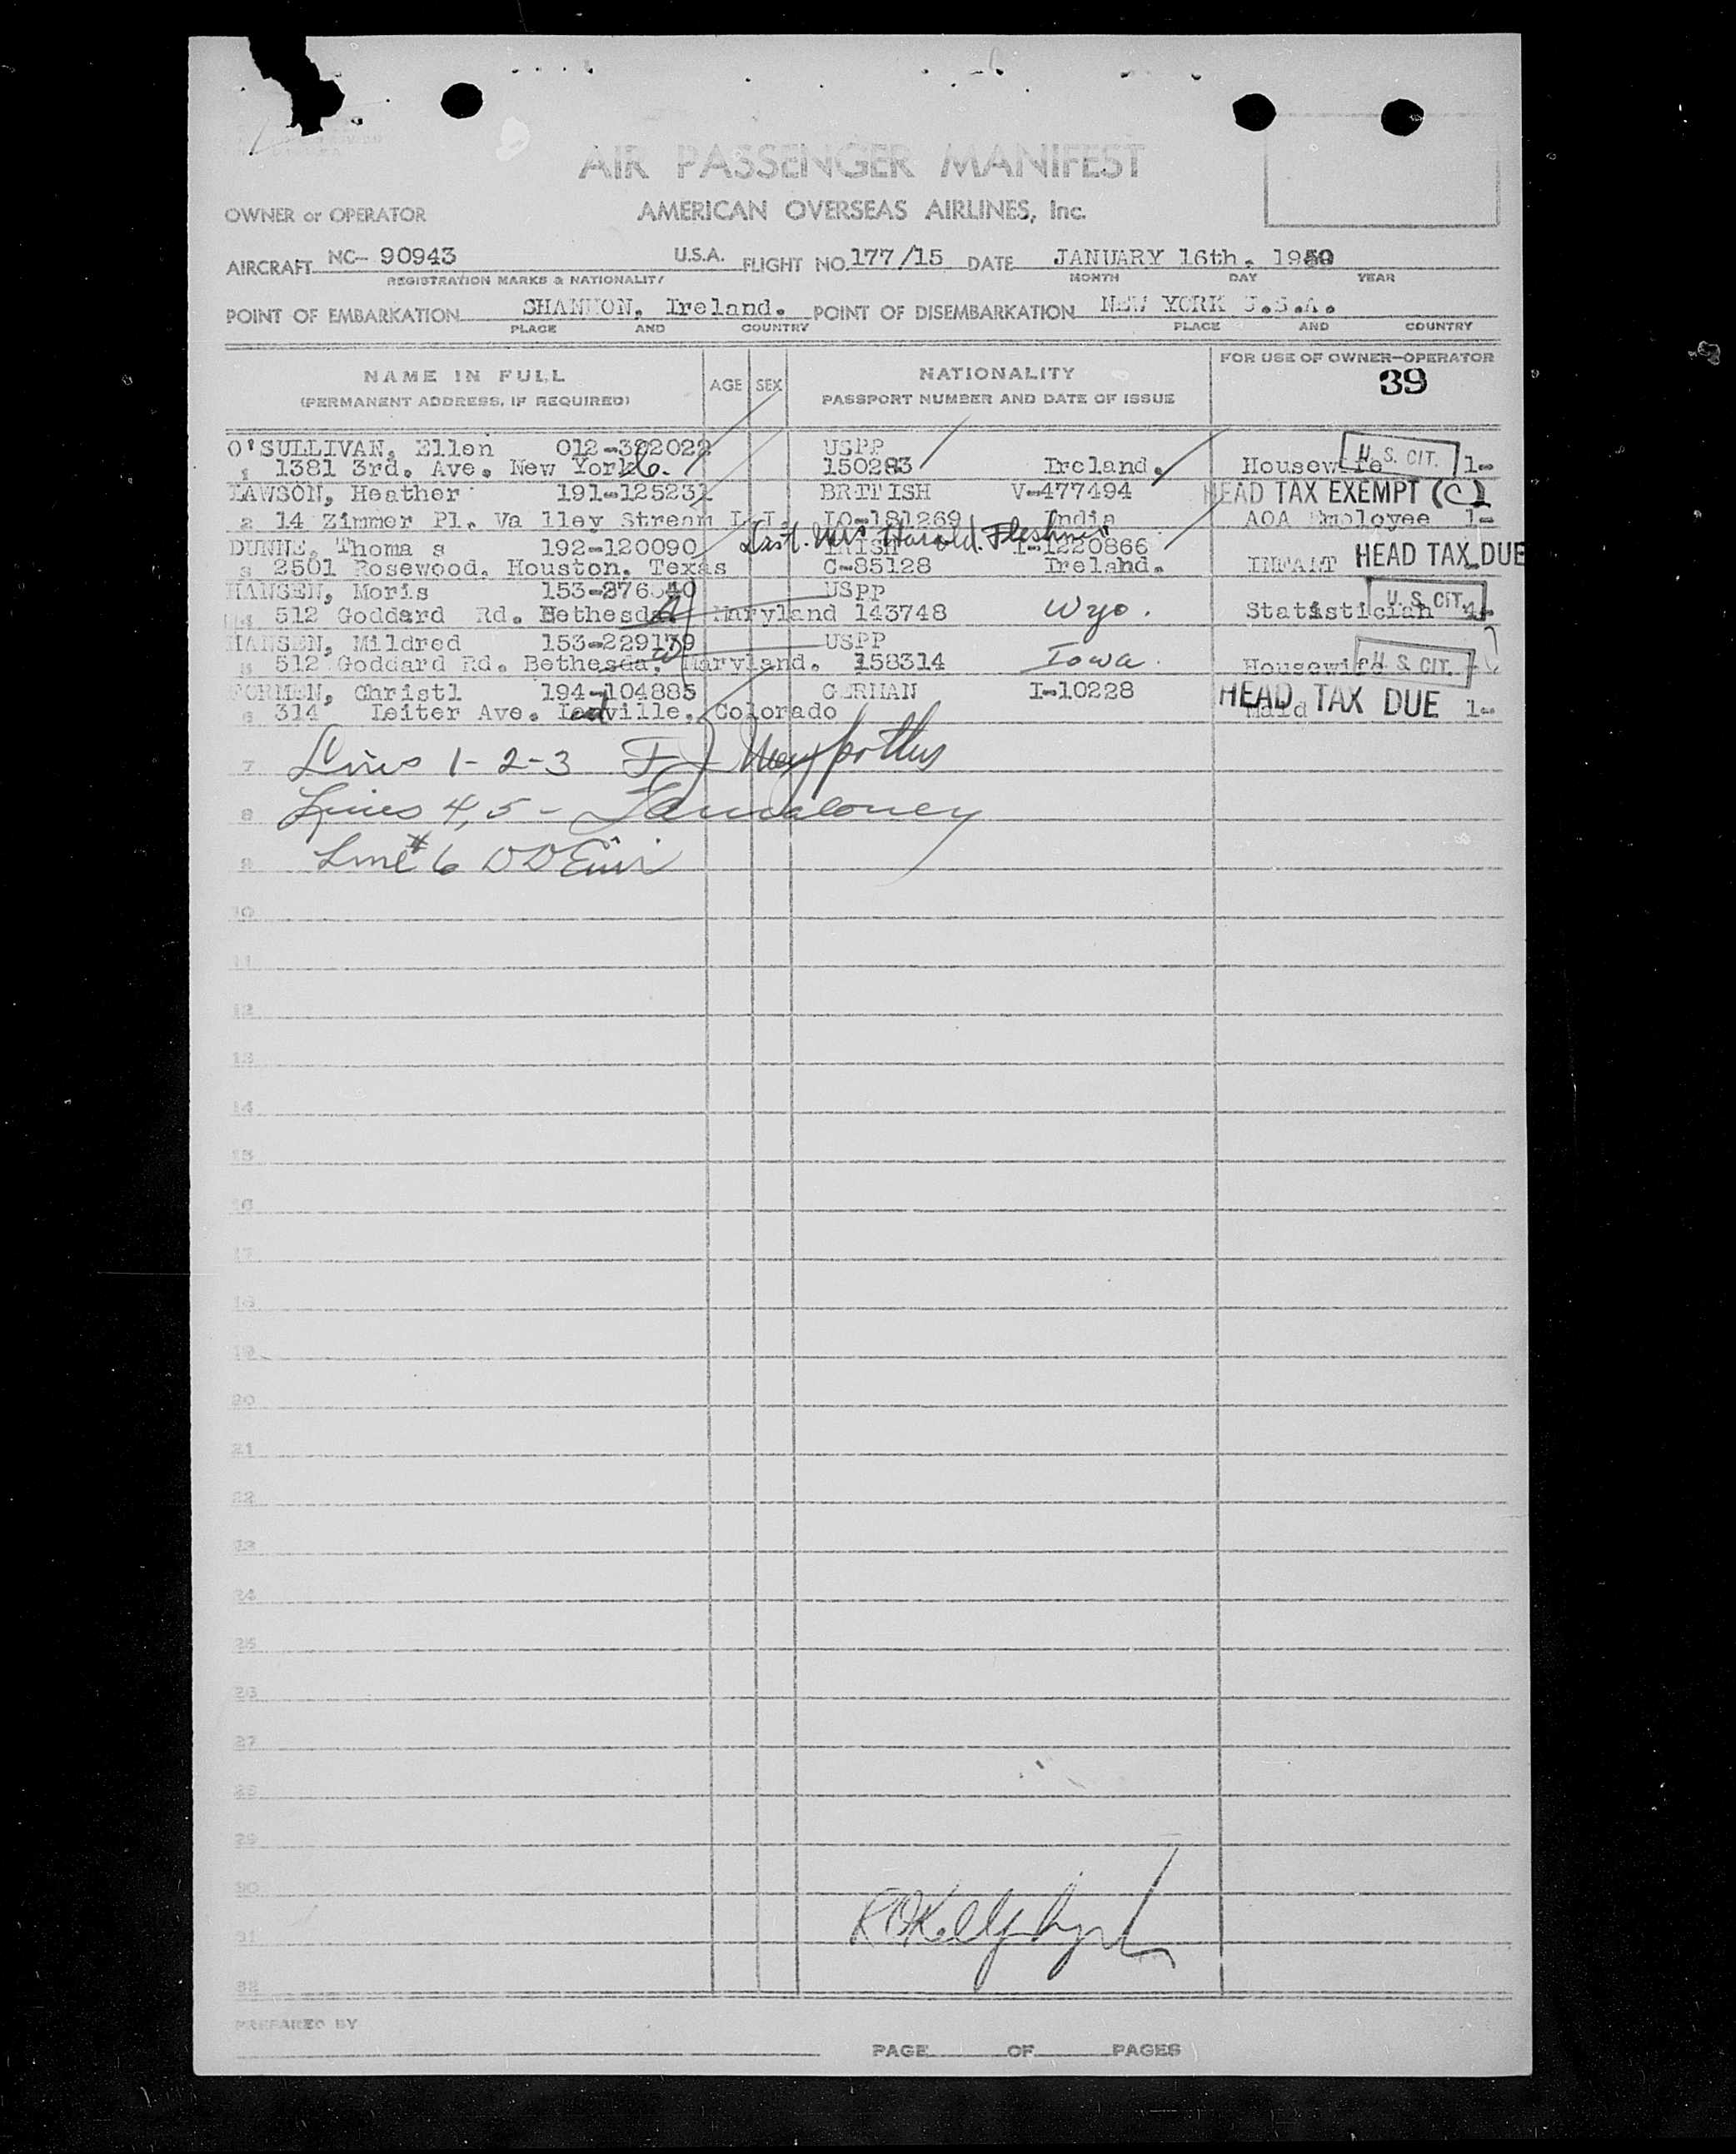 AIR PASSENGER MANIFEST
OWNER or OPERATOR AMERICAN OVERSEAS AIRLINES, Inc.
AIRCRAFT NC- 90943 U.S.A. FLIGHT NO. 177/15 DATE JANUARY 16th. 1950
REGISTRATION MARKS & NATIONALITY MONTH DAY YEAR
POINT OF EMBARKATION SHANNON, Ireland. POINT OF DISEMBARKATION NEW YORK U.S.A.
PLACE AND COUNTRY PLACE AND COUNTRY
NAME IN FULL AGE SEX NATIONALITY FOR USE OF OWNER-OPERATOR
(PERMANENT ADDRESS, IF REQUIRED) PASSPORT NUMBER AND DATE OF ISSUE 39
O'SULLIVAN, Ellen 012-302022 USPP
1 1381 3rd. Ave. New York 6. 150283 Ireland. Housewife U. S. CIT. 1-
LAWSON, Heather 191-125231 BRITISH V-477494 HEAD TAX EXEMPT (C)
2 14 Zimmer Pl. Va lley Stream L.I. LO-181269 India AOA Employee 1-
Dest. Mrs Harold Fleshner
DUNNE, Thoma s 192-120090 IRISH I-1220866
3 2501 Rosewood. Houston. Texas C-85128 Ireland. INFANT HEAD TAX DUE
HANSEN, Moris USPP
4 512 Goddard Rd. Bethesda Maryland 143748 Wyo. Statistician U. S. CIT.
HANSEN, Mildred 153-229179 USPP
5 512 Goddard Rd. Bethesda. Maryland. 158314 Iowa. Housewife U. S. CIT.
FORMEN, Christl 194-104885 GERMAN I-10228 HEAD TAX DUE
6 314 Leiter Ave. Leadville, Colorado Maid 1-
7 Lines 1-2-3 F J
8 Lines 4, 5 -
9 Line #6 DD
10
11
12
13
14
15
16
17
18
19
20
21
22
23
24
25
26
27
28
29
30
31
32
PREPARED BY
PAGE OF PAGES